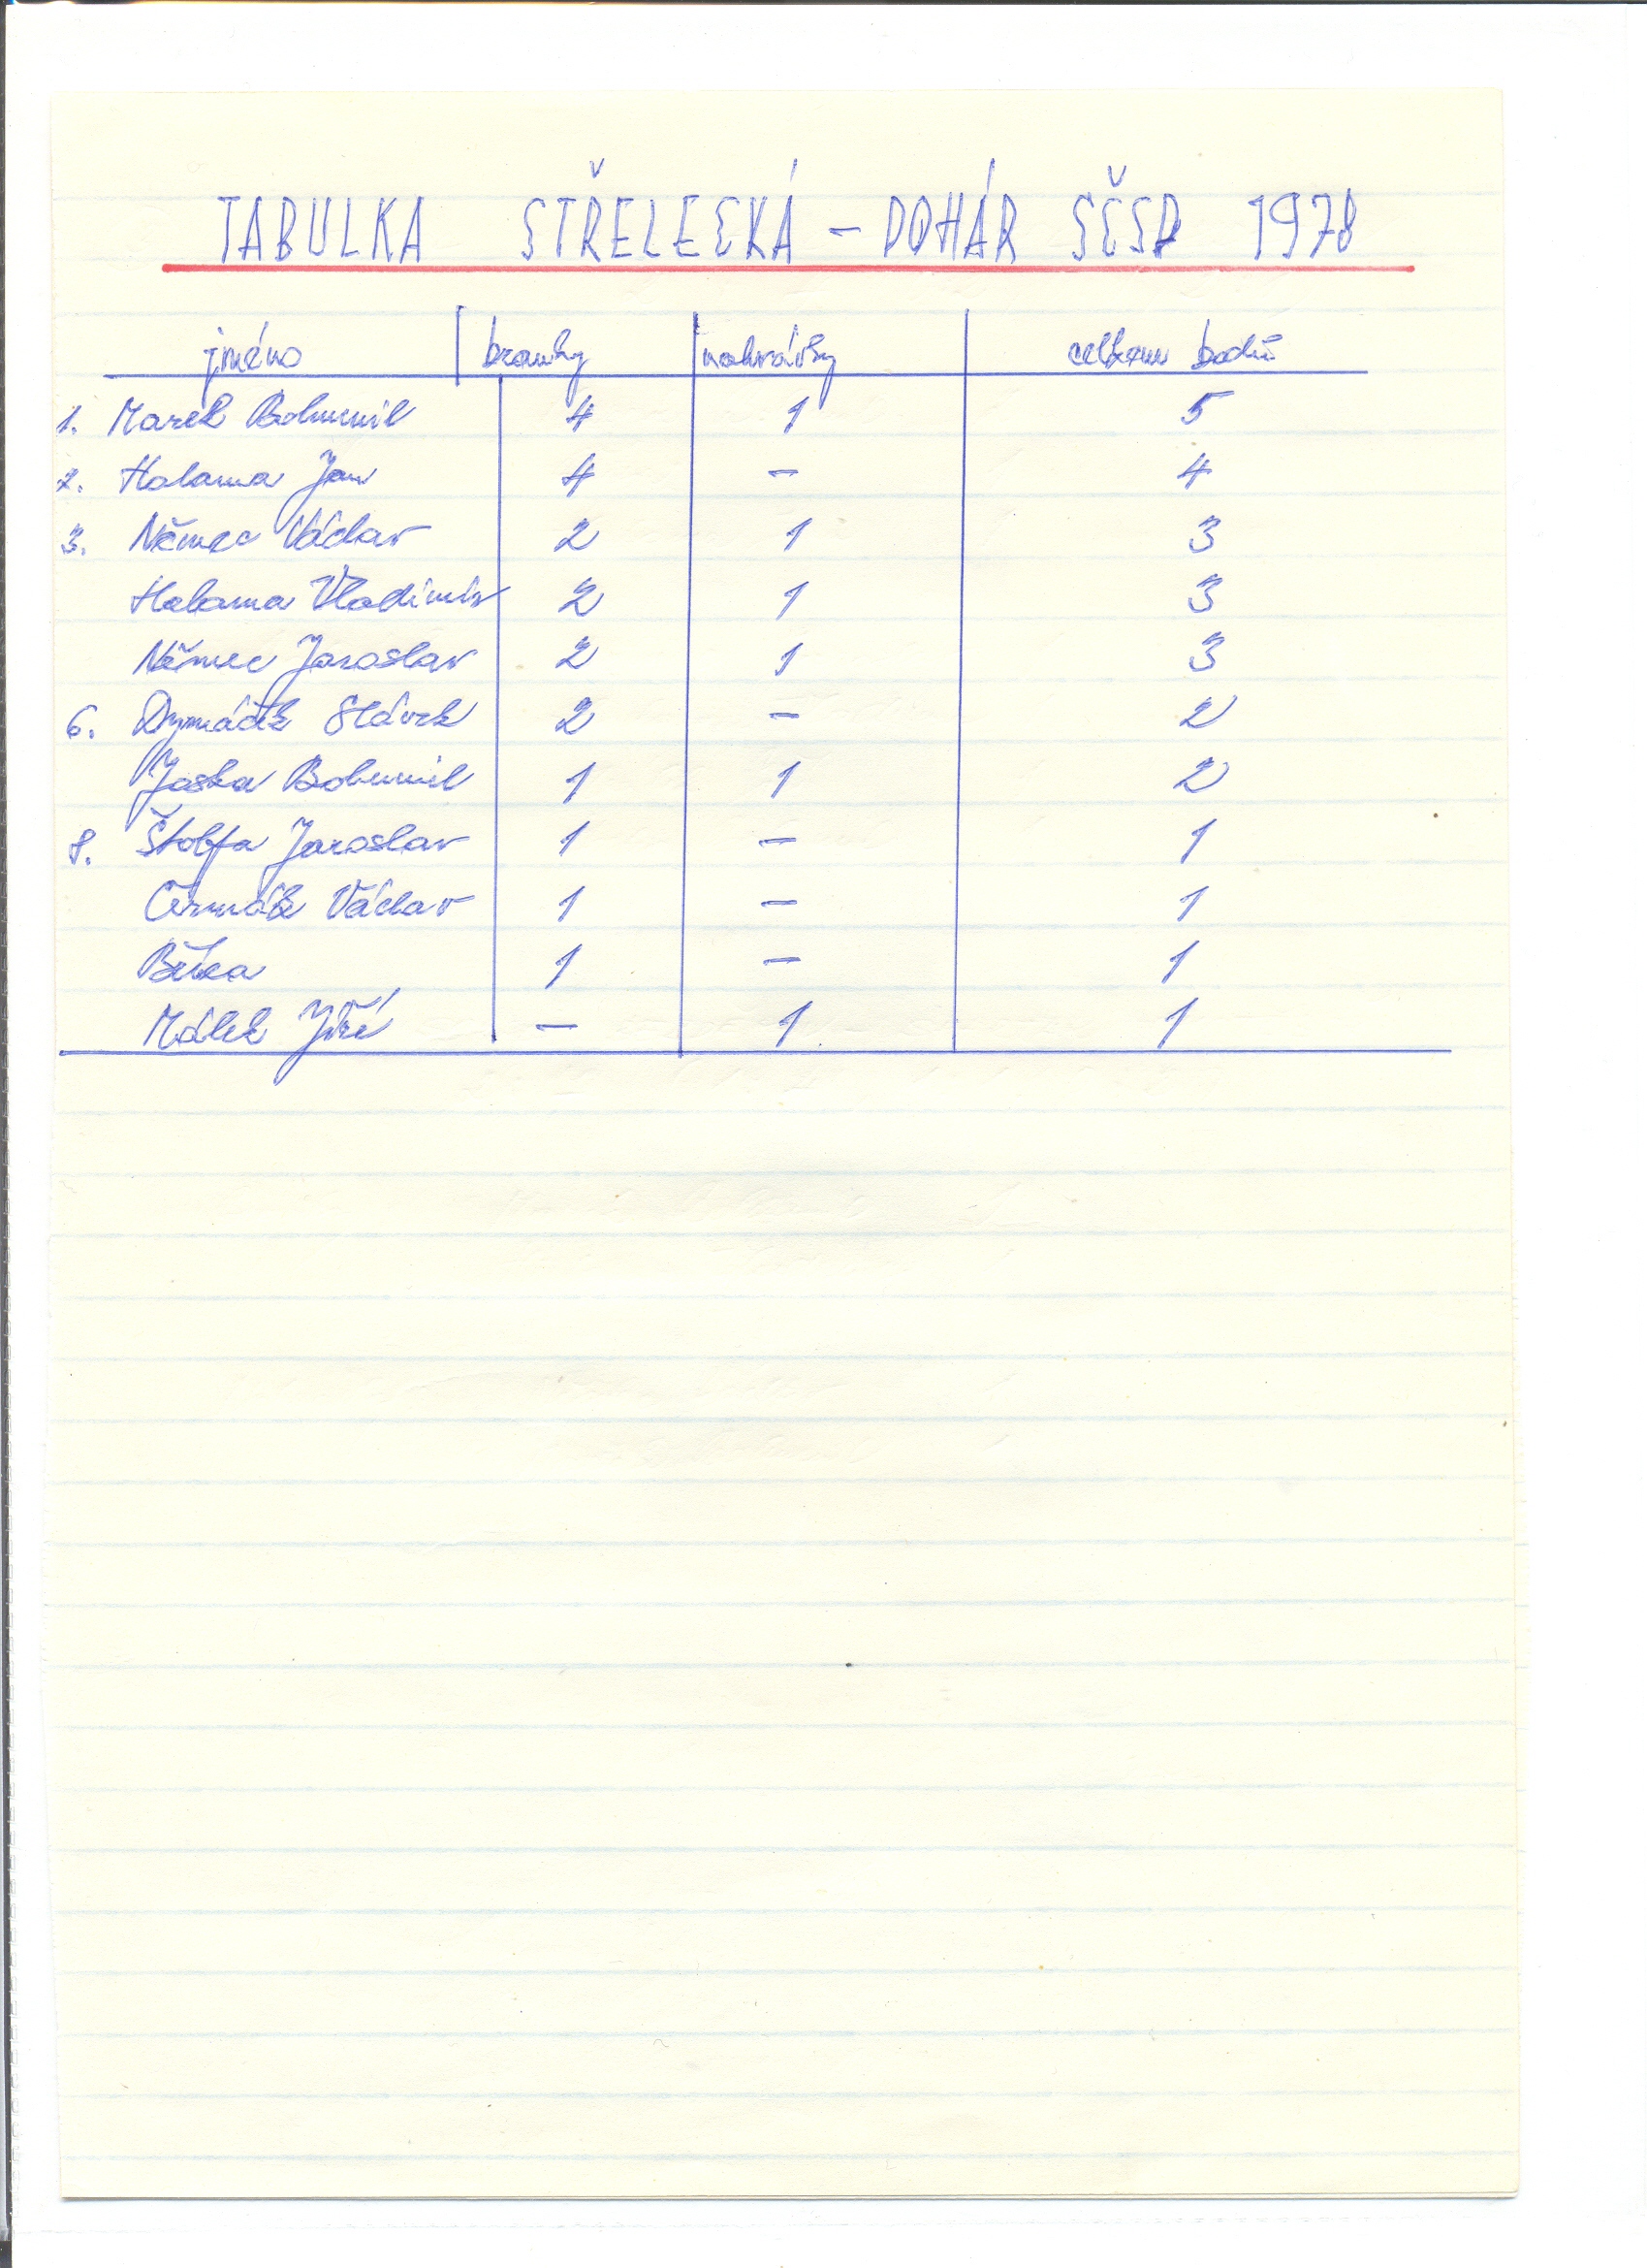 TABULKA STŘELECKÁ - POHÁR SČSP 1978
jméno branky nahrávky celkem bodů
1. Marek Bohumil 4 1 5
2. Halama Jan 4 - 4
3. Němec Václav 2 1 3
Halama Vladimír 2 1 3
Němec Jaroslav 2 1 3
6. Slávek 2 - 2
Jaska Bohumil 1 1 2
8. Štolfa Jaroslav 1 - 1
Čermák Václav 1 - 1
1 - 1
Málek Jiří - 1 1